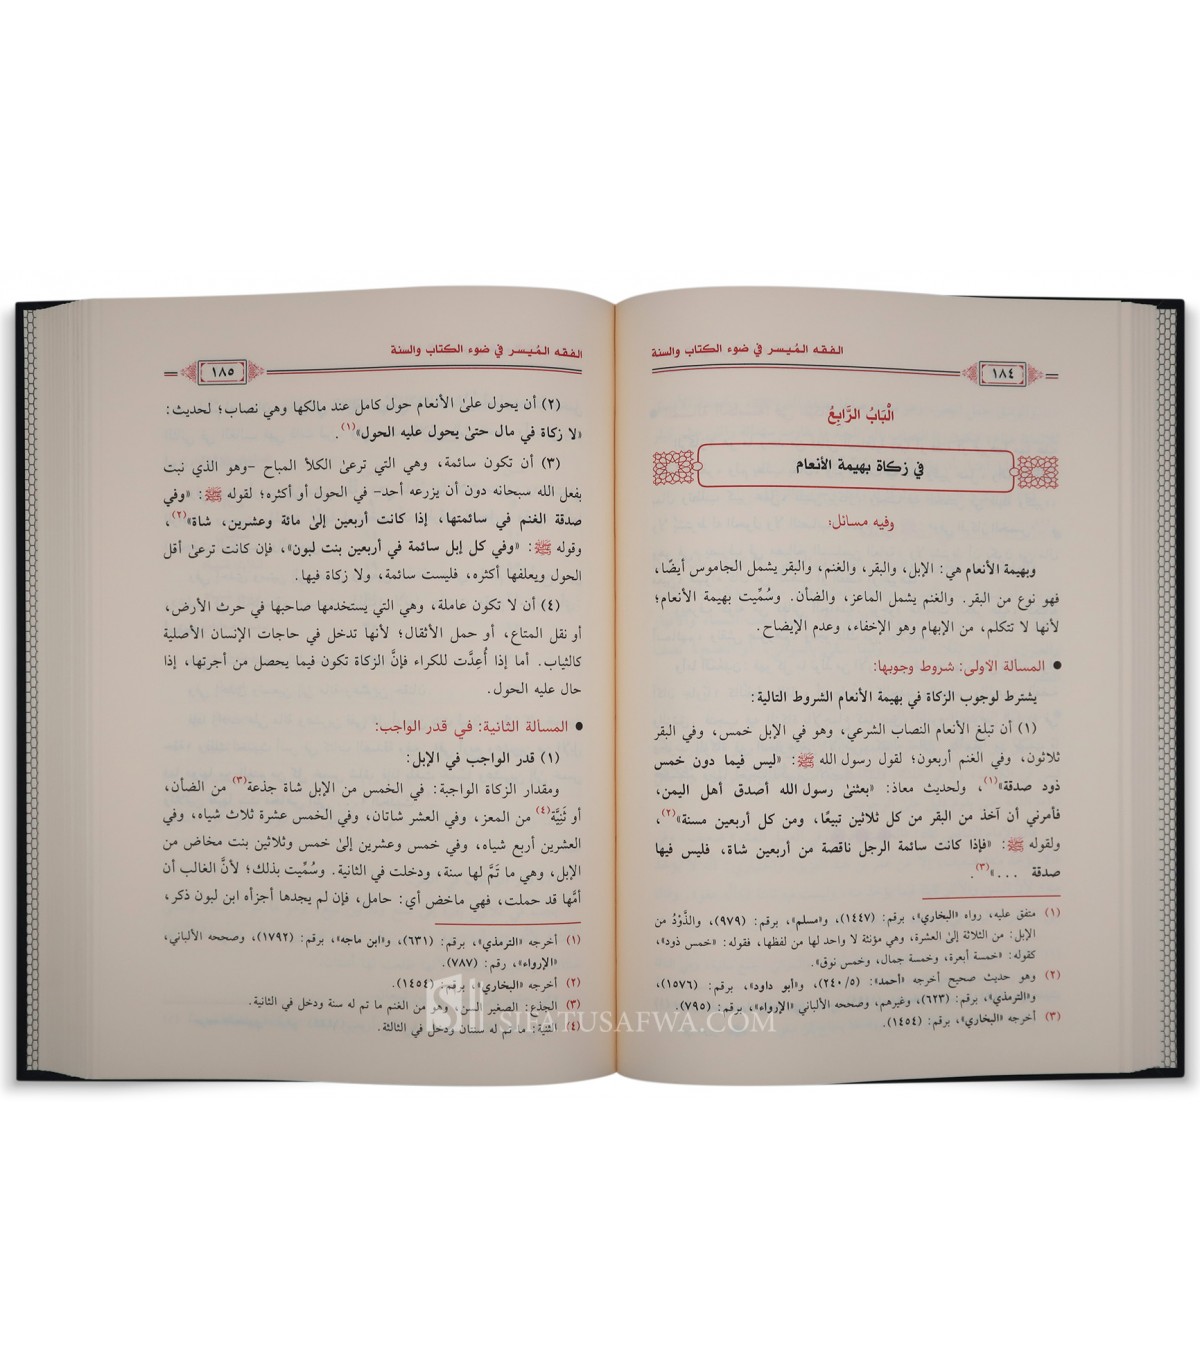 الفقه المُيسر في ضوء الكتاب والسنة
١٨٤
الْبَابُ الرَّابِعُ
في زكاة بهيمة الأنعام
وفيه مسائل:
وبهيمة الأنعام هي: الإبل، والبقر، والغنم، والبقر يشمل الجاموس أيضًا،
فهو نوع من البقر. والغنم يشمل الماعز، والضأن. وسُمِّيت بهيمة الأنعام؛
لأنها لا تتكلم، من الإبهام وهو الإخفاء، وعدم الإيضاح.
● المسالة الأولى: شروط وجوبها:
يشترط لوجوب الزكاة في بهيمة الأنعام الشروط التالية:
(١) أن تبلغ الأنعام النصاب الشرعي، وهو في الإبل خمس، وفي البقر
ثلاثون، وفي الغنم أربعون؛ لقول رسول الله ﷺ: «ليس فيما دون خمس
ذود صدقة»(١)، ولحديث معاذ: «بعثنى رسول الله أصدق أهل اليمن،
فأمرني أن آخذ من البقر من كل ثلاثين تبيعًا، ومن كل أربعين مسنة»(٢)،
ولقوله ﷺ: «فإذا كانت سائمة الرجل ناقصة من أربعين شاة، فليس فيها
صدقة ...»(٣).
(١) متفق عليه، رواه «البخاري»، برقم: (١٤٤٧)، و«مسلم»، برقم: (٩٧٩)، والذَّوْدُ من
الإبل: من الثلاثة إلى العشرة، وهي مؤنثة لا واحد لها من لفظها، فقوله: «خمس ذود»،
كقوله: «خمسة أبعرة، وخمسة جمال، وخمس نوق».
(٢) وهو حديث صحيح أخرجه «أحمد»: (٢٤٠/٥)، و«أبو داود»، برقم: (١٥٧٦)،
و«الترمذي»، برقم: (٦٢٣)، وغيرهم، وصححه الألباني «الإرواء»، برقم: (٧٩٥).
(٣) أخرجه «البخاري»، برقم: (١٤٥٤).
الفقه المُيسر في ضوء الكتاب والسنة
١٨٥
(٢) أن يحول علىٰ الأنعام حول كامل عند مالكها وهي نصاب؛ لحديث:
«لا زكاة في مال حتىٰ يحول عليه الحول»(١).
(٣) أن تكون سائمة، وهي التي ترعىٰ الكلأ المباح -وهو الذي نبت
بفعل الله سبحانه دون أن يزرعه أحد- في الحول أو أكثره؛ لقوله ﷺ: «وفي
صدقة الغنم في سائمتها، إذا كانت أربعين إلىٰ مائة وعشرين، شاة»(٢)،
وقوله ﷺ: «وفي كل إبل سائمة في أربعين بنت لبون»، فإن كانت ترعىٰ أقل
الحول ويعلفها أكثره، فليست سائمة، ولا زكاة فيها.
(٤) أن لا تكون عاملة، وهي التي يستخدمها صاحبها في حرث الأرض،
أو نقل المتاع، أو حمل الأثقال؛ لأنها تدخل في حاجات الإنسان الأصلية
كالثياب. أما إذا أُعِدَّت للكراء فإنَّ الزكاة تكون فيما يحصل من أجرتها، إذا
حال عليه الحول.
● المسالة الثانية: في قدر الواجب:
(١) قدر الواجب في الإبل:
ومقدار الزكاة الواجبة: في الخمس من الإبل شاة جذعة(٣) من الضأن،
أو ثَنِيَّة(٤) من المعز، وفي العشر شاتان، وفي الخمس عشرة ثلاث شياه، وفي
العشرين أربع شياه، وفي خمس وعشرين إلىٰ خمس وثلاثين بنت مخاض من
الإبل، وهي ما تَمَّ لها سنة، ودخلت في الثانية. وسُمِّيت بذلك؛ لأنَّ الغالب أن
أمَّها قد حملت، فهي ماخض أي: حامل، فإن لم يجدها أجزأه ابن لبون ذكر،
(١) أخرجه «الترمذي»، برقم: (٦٣١)، و«ابن ماجه»، برقم: (١٧٩٢)، وصححه الألباني،
«الإرواء»، رقم: (٧٨٧).
(٢) أخرجه «البخاري»، برقم: (١٤٥٤).
(٣) الجذع: الصغير السن، وهو من الغنم ما تم له سنة ودخل في الثانية.
(٤) الثنية: ما تم له سنتان ودخل في الثالثة.
SIFATUSAFWA.COM